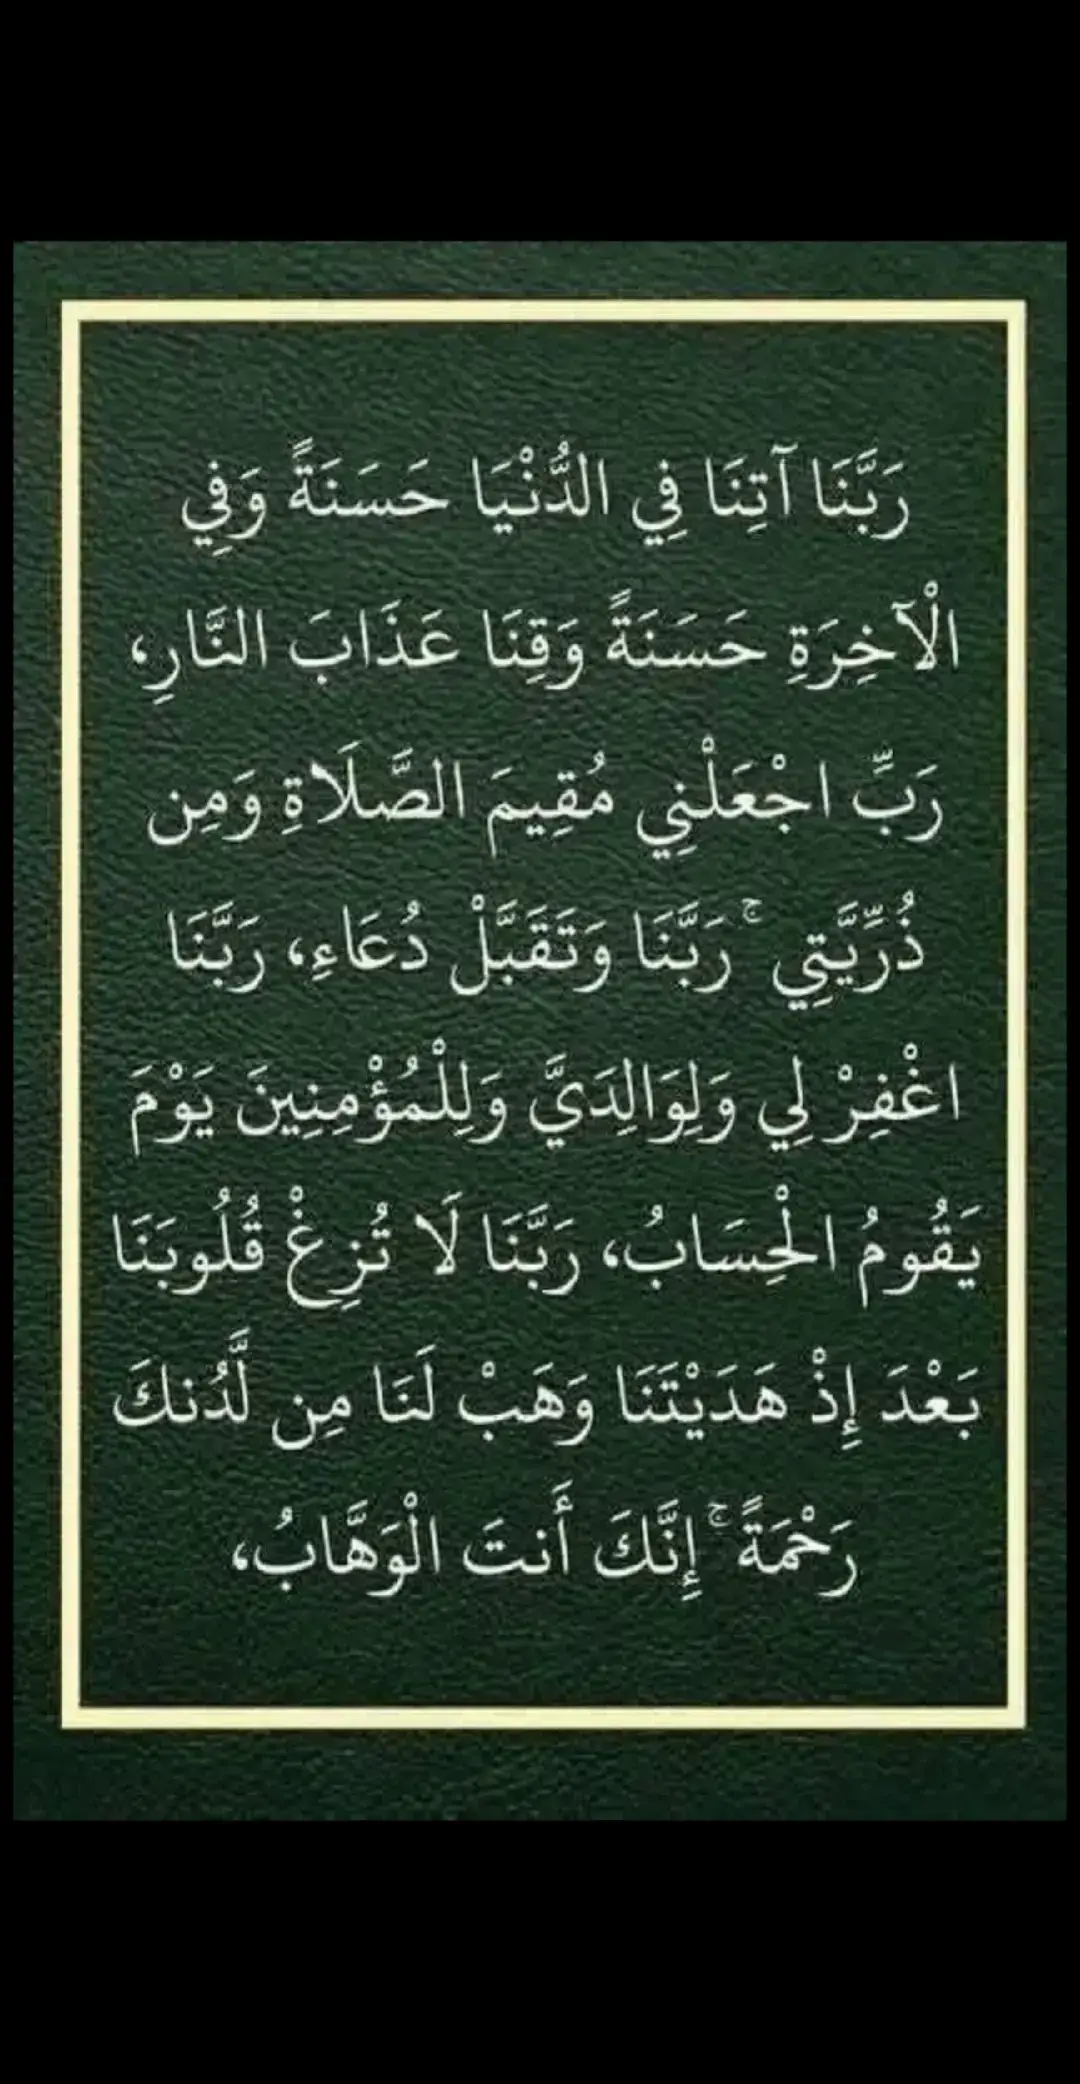 رَبَّنَا آتِنَا فِي الدُّنْيَا حَسَنَةً وَفِي
الْآخِرَةِ حَسَنَةً وَقِنَا عَذَابَ النَّارِ،
رَبِّ اجْعَلْنِي مُقِيمَ الصَّلَاةِ وَمِن
ذُرِّيَّتِي ۚ رَبَّنَا وَتَقَبَّلْ دُعَاءِ، رَبَّنَا
اغْفِرْ لِي وَلِوَالِدَيَّ وَلِلْمُؤْمِنِينَ يَوْمَ
يَقُومُ الْحِسَابُ، رَبَّنَا لَا تُزِغْ قُلُوبَنَا
بَعْدَ إِذْ هَدَيْتَنَا وَهَبْ لَنَا مِن لَّدُنكَ
رَحْمَةً ۚ إِنَّكَ أَنتَ الْوَهَّابُ،